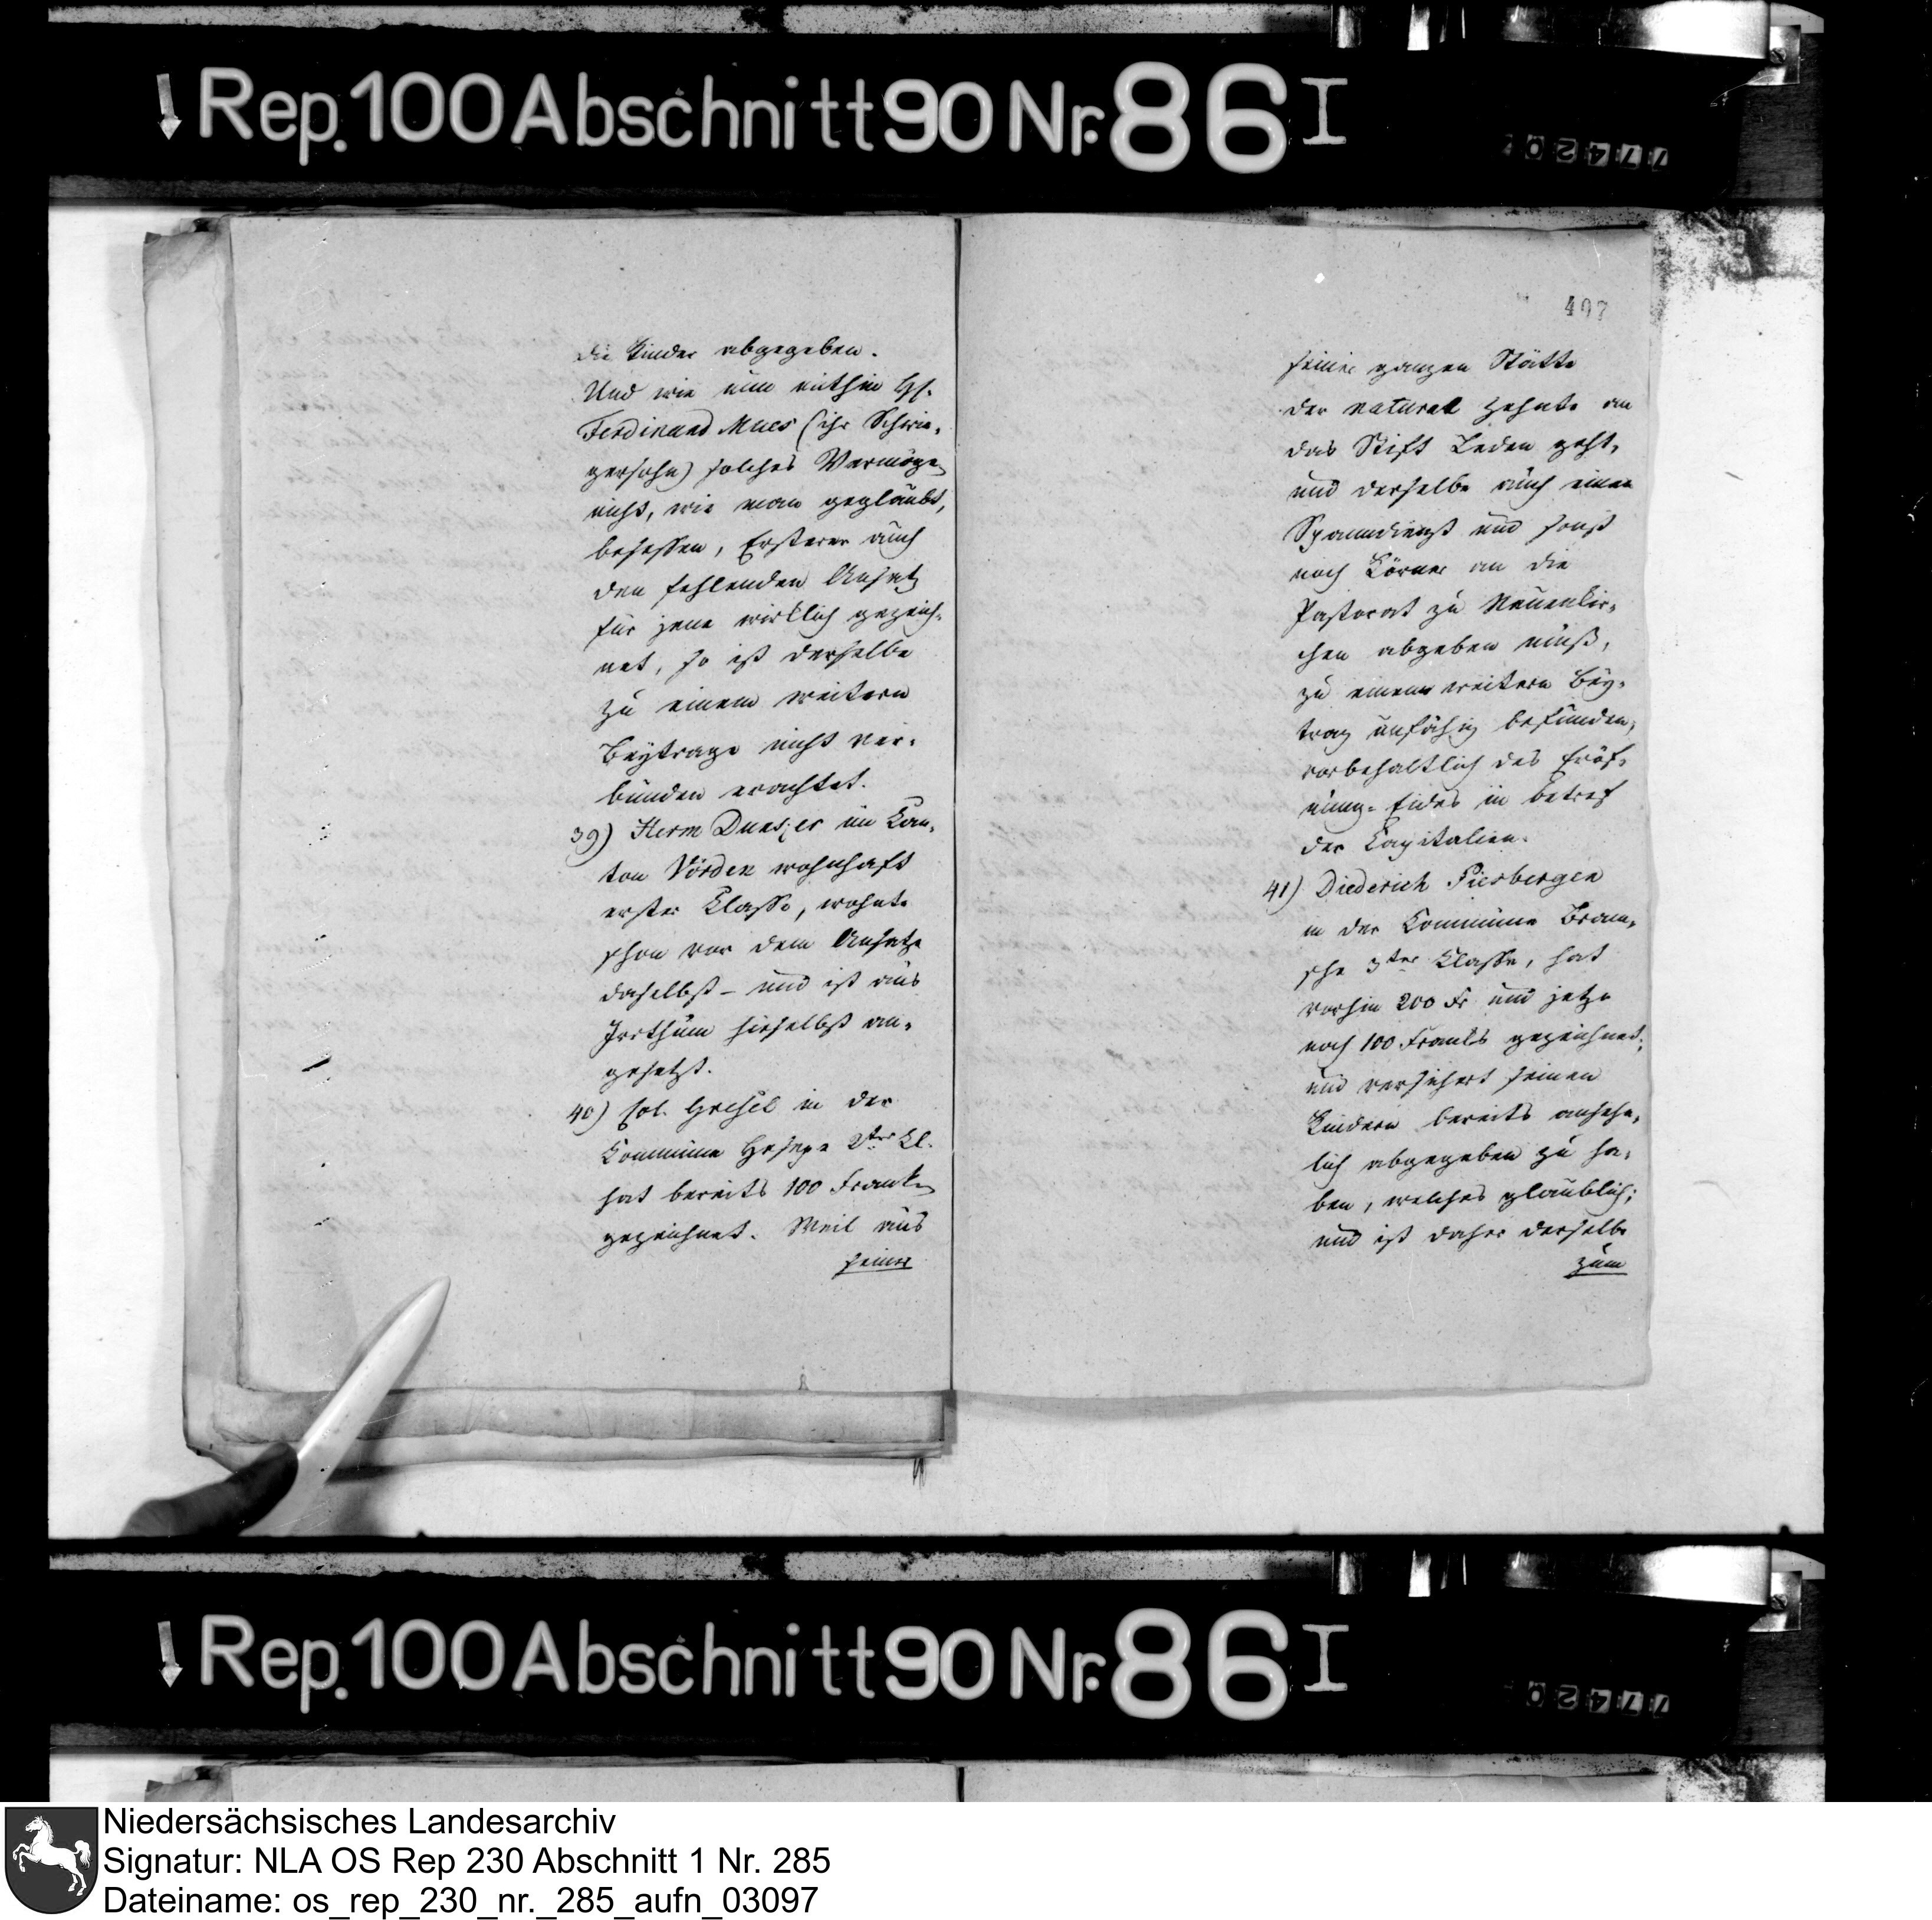 Rep. 100 Abschnitt 90 Nr. 86 I
77420
die Kinder abgegeben.
Und wie nun mithin H.
Ferdinand Mues (ihr Schwie-
gersohn) solches Vermögen
nicht, wie man geglaubt,
besessen, Ersterer auch
den fehlenden Ansatz
für jene wirklich gezeich-
net, so ist derselbe
zu einem weitern
Beytrage nicht ver-
bunden erachtet.
39) Herm im Kan-
ton Vörden wohnhaft
erster Classe, wohnte
schon vor dem Ansatze
daselbst – und ist aus
Irrthum hieselbst an-
gesetzt.
40) Col. Gresel in der
Commune Hesepe 2ter Cl.
hat bereits 100 Franken
gezeichnet. Weil aus
seiner
407
seiner ganzen Stätte
der natural Zehnte an
das Stift Leden geht,
und derselbe auch einen
Spanndienst und sonst
noch Körner an die
Pastorat zu Neuenkir-
chen abgeben muß,
zu einem weitern Bey-
trag unfähig befunden,
vorbehaltlich des Eröf-
nung-Eides in betref
der Capitalien.
41) Diederich Piesbergen
in der Commune Bram-
sche 3ter Classe, hat
vorhin 200 Fr und jetzo
noch 100 Franks gezeichnet;
und versichert seinen
Kindern bereits ansehn-
lich abgegeben zu ha-
ben, welches glaublich;
und ist daher derselbe
zum
Rep. 100 Abschnitt 90 Nr. 86 I
77420
Niedersächsisches Landesarchiv
Signatur: NLA OS Rep 230 Abschnitt 1 Nr. 285
Dateiname: os_rep_230_nr._285_aufn_03097